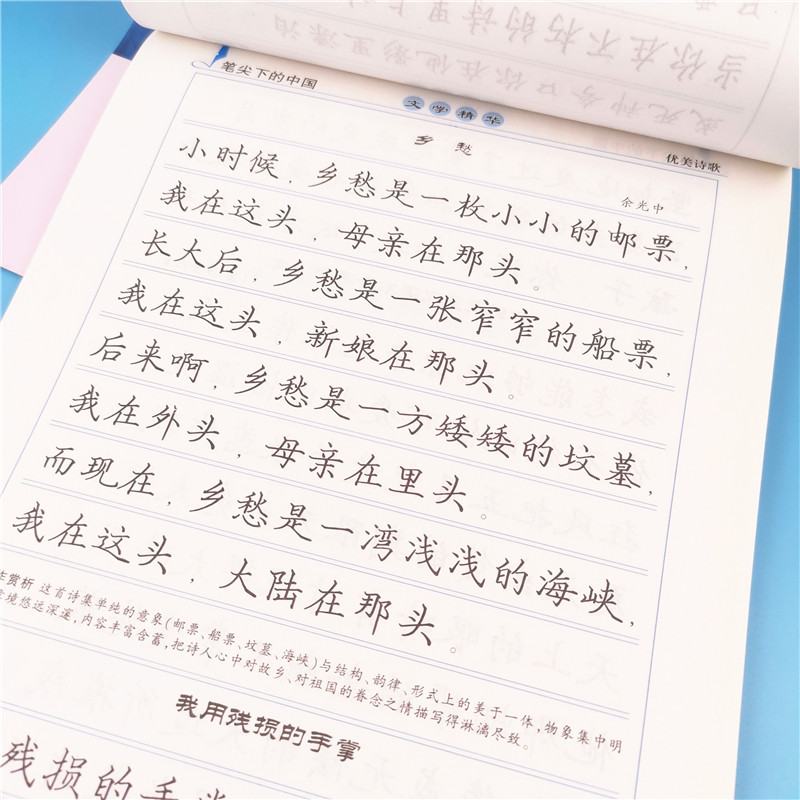 当你在不朽的诗里
或死神夸口你在他影里漂泊
笔尖下的中国
文学精华
优美诗歌
乡愁
余光中
小时候，乡愁是一枚小小的邮票，
我在这头，母亲在那头。
长大后，乡愁是一张窄窄的船票，
我在这头，新娘在那头。
后来啊，乡愁是一方矮矮的坟墓，
我在外头，母亲在里头。
而现在，乡愁是一湾浅浅的海峡，
我在这头，大陆在那头。
赏析 这首诗集单纯的意象(邮票、船票、坟墓、海峡)与结构、韵律、形式上的美于一体，物象集中明
境悠远深邃，内容丰富含蓄，把诗人心中对故乡、对祖国的眷念之情描写得淋漓尽致。
我用残损的手掌
残损的手掌